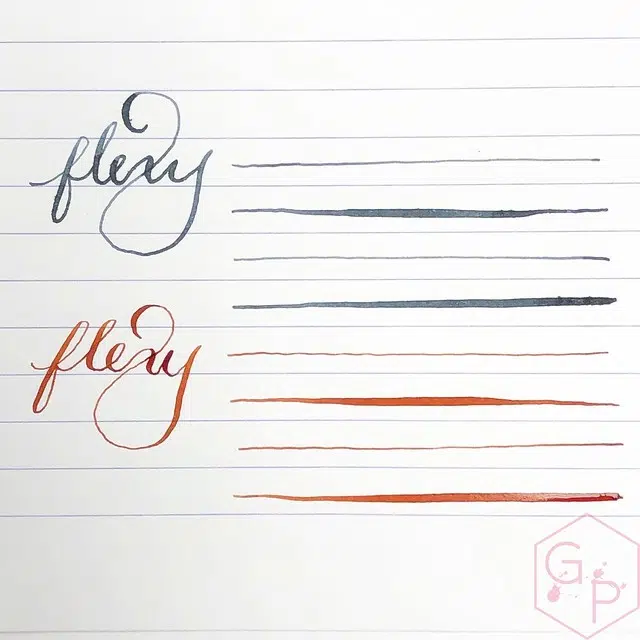 flexy
flexy
G
P